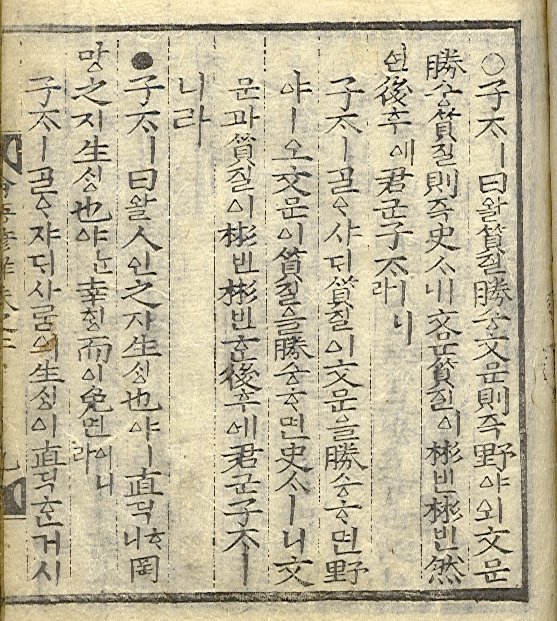 ○子ᄌᆞㅣ曰왈質질勝승文문則즉野야ㅣ오文문
勝승質질則즉史ᄉᆞㅣ니文문質질이彬빈彬빈然
연後후에君군子ᄌᆞㅣ니라
子ᄌᆞㅣᄀᆞᆯᄋᆞ샤ᄃᆡ質질이文문을勝승ᄒᆞ면野
야ㅣ오文문이質질을勝승ᄒᆞ면史ᄉᆞㅣ니文
문과質질이彬빈彬빈ᄒᆞᆫ後후에君군子ᄌᆞㅣ
니라
●子ᄌᆞㅣ曰왈人인之지生ᄉᆡᆼ也야ㅣ直딕ᄒᆞ니罔
망之지生ᄉᆡᆼ也야ᄂᆞᆫ幸ᄒᆡᆼ而이免면이니라
子ᄌᆞㅣᄀᆞᆯᄋᆞ샤ᄃᆡ사ᄅᆞᆷ의生ᄉᆡᆼ이直딕ᄒᆞᆫ거시